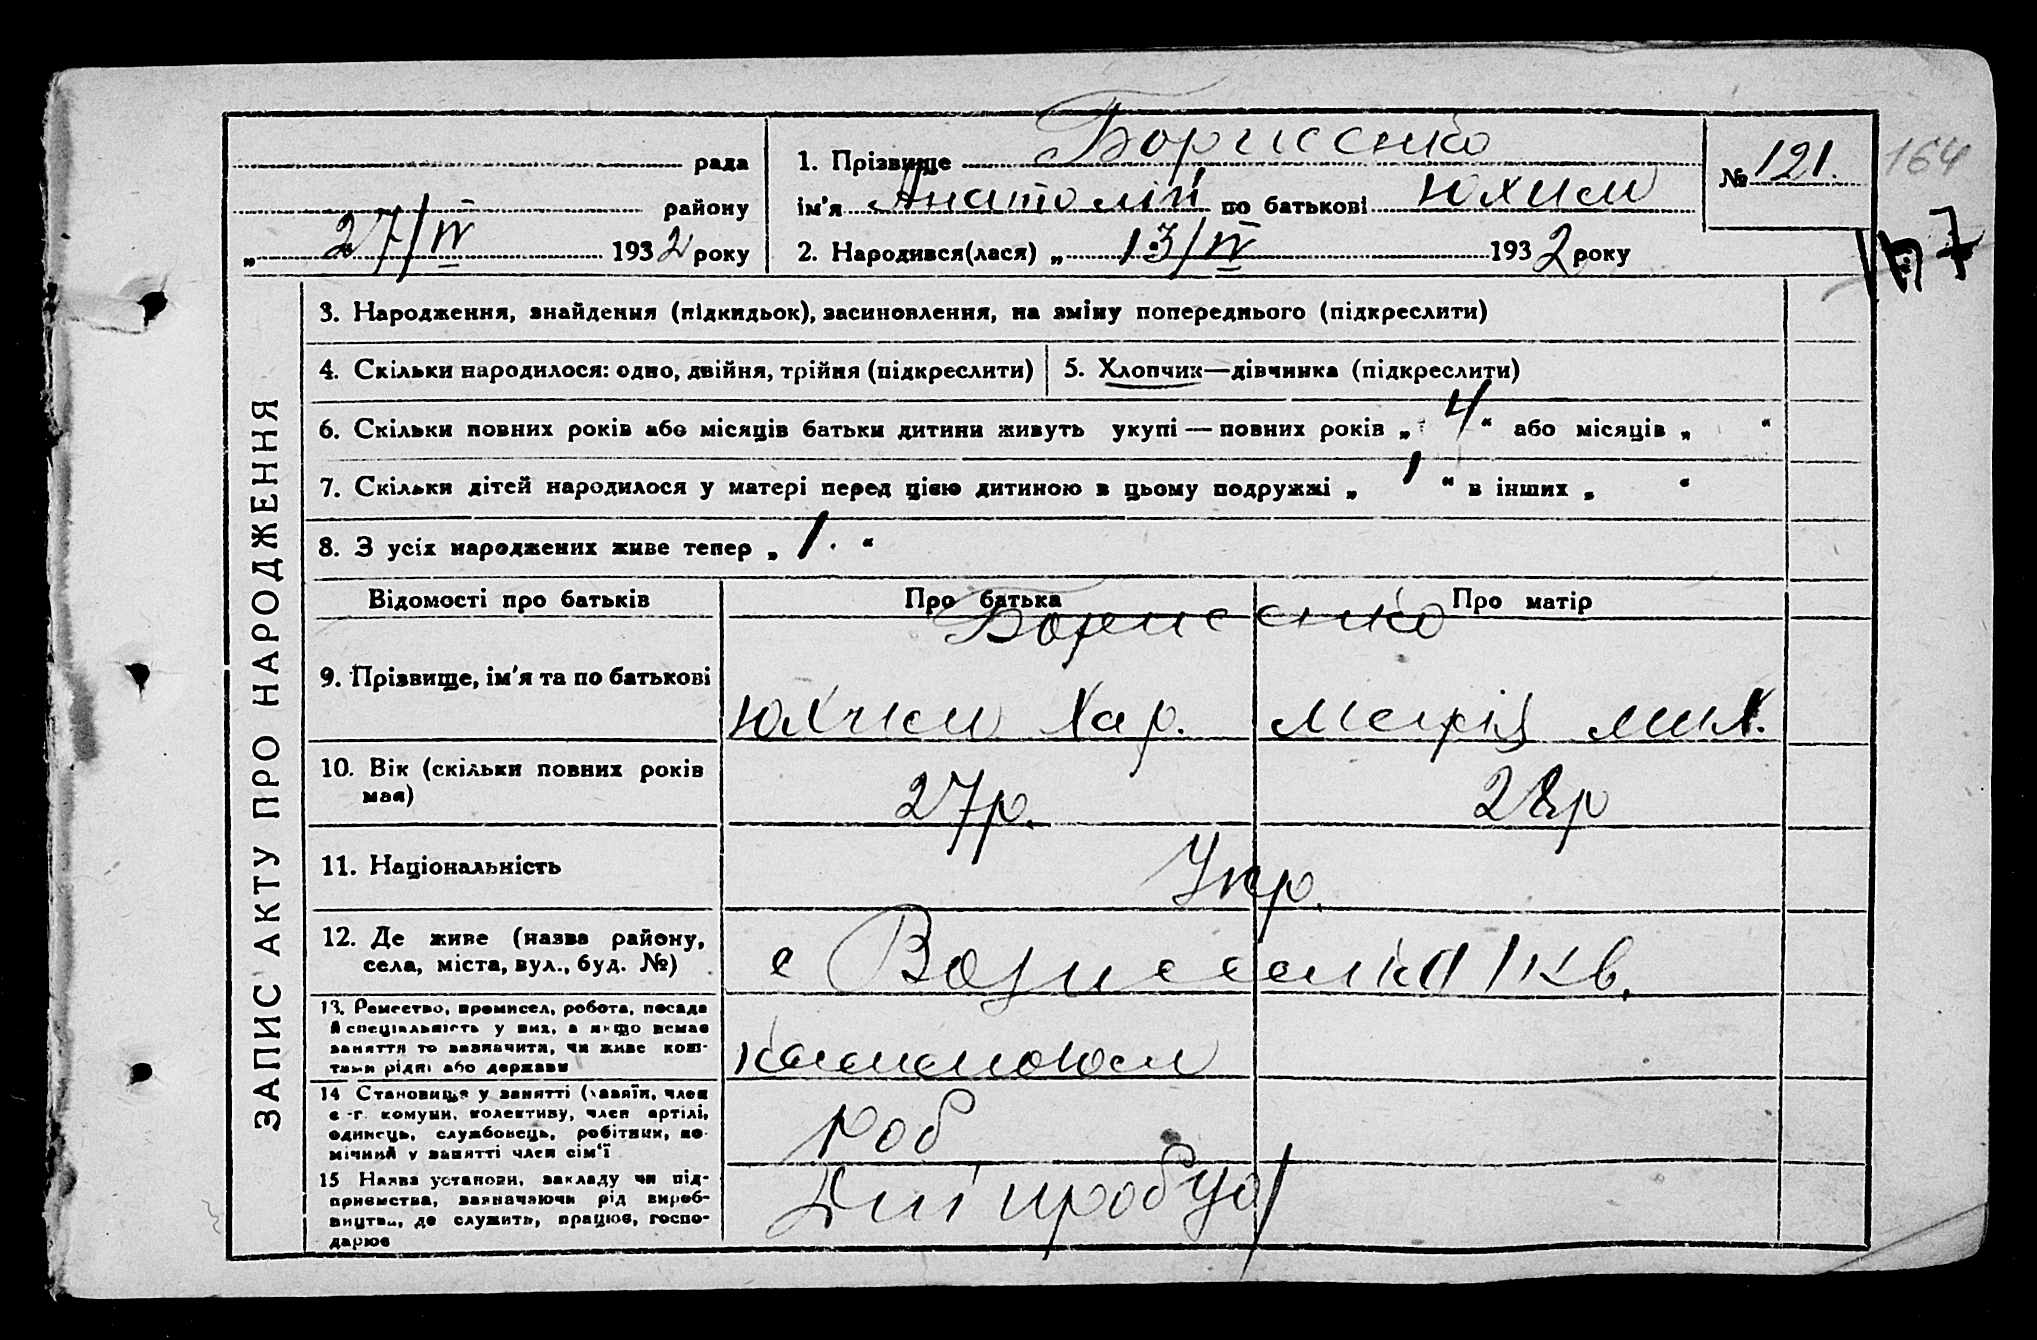 ЗАПИС АКТУ ПРО НАРОДЖЕННЯ
рада
району
„ 27/IV 1932 року
1. Прізвище Борисенко
ім'я Анатолій по батькові Юхим
2. Народився(лася) „ 13/IV 1932 року
№ 121.
164
3. Народження, знайдения (підкидьок), засиновлення, на зміну попереднього (підкреслити)
4. Скільки народилося: одно, двійня, трійня (підкреслити)
5. Хлопчик—дівчинка (підкреслити)
6. Скільки повних років або місяців батьки дитини живуть укупі — повних років „ 4 “ або місяців „ “
7. Скільки дітей народилося у матері перед цією дитиною в цьому подружжі „ 1 “ в інших „ “
8. З усіх народжених живе тепер „ 1. “
Відомості про батьків
Про батька
Про матір
9. Прізвище, ім'я та по батькові
Борисенко
Юхим Хар.
Марія Мих.
10. Вік (скільки повних років
має)
27р.
28р
11. Національність
Укр.
12. Де живе (назва району,
села, міста, вул., буд. №)
с Вознесенка 1 кв.
13. Ремество, промисел, робота, посада
й спеціяльність у них, а якщо немає
заняття то зазначити, чи живе кош-
тами рідні або держави
14 Становище у занятті (хазяїн, член
с.-г. комуни, колективу, член артілі,
одинець, службовець, робітник, по-
мічний у занятті член сім'ї
роб
15 Назва установи, закладу чи під-
приємства, зазначаючи рід вироб-
ництва, де служить, працює, госпо-
дарює
Дніпробуд